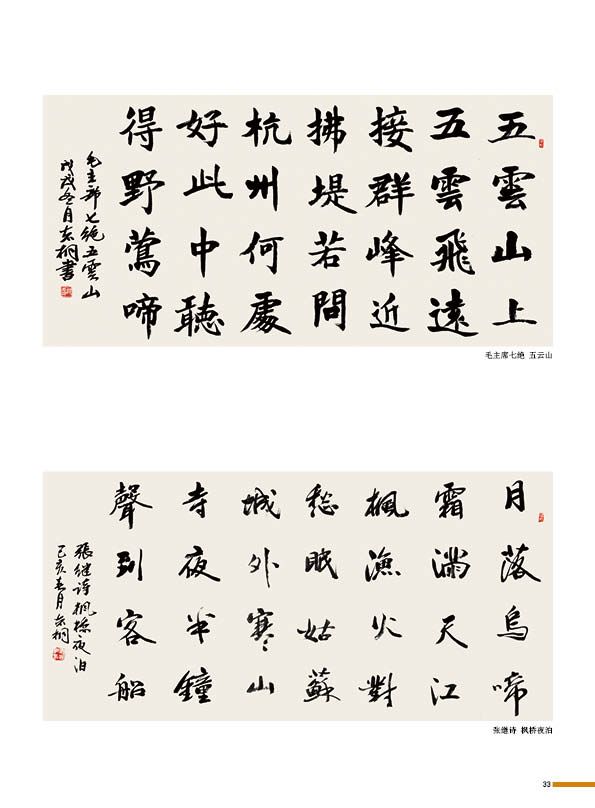 五雲山上
五雲飛遠
接群峰近
拂堤若問
杭州何處
好此中聽
得野鶯啼
毛主席七绝五雲山
戊戌冬月桐書
毛主席七绝 五云山
月落烏啼
霜滿天江
楓漁火對
愁眠姑蘇
城外寒山
寺夜半鐘
聲到客船
張继诗楓橋夜泊
己亥春月桐
张继诗 枫桥夜泊
33